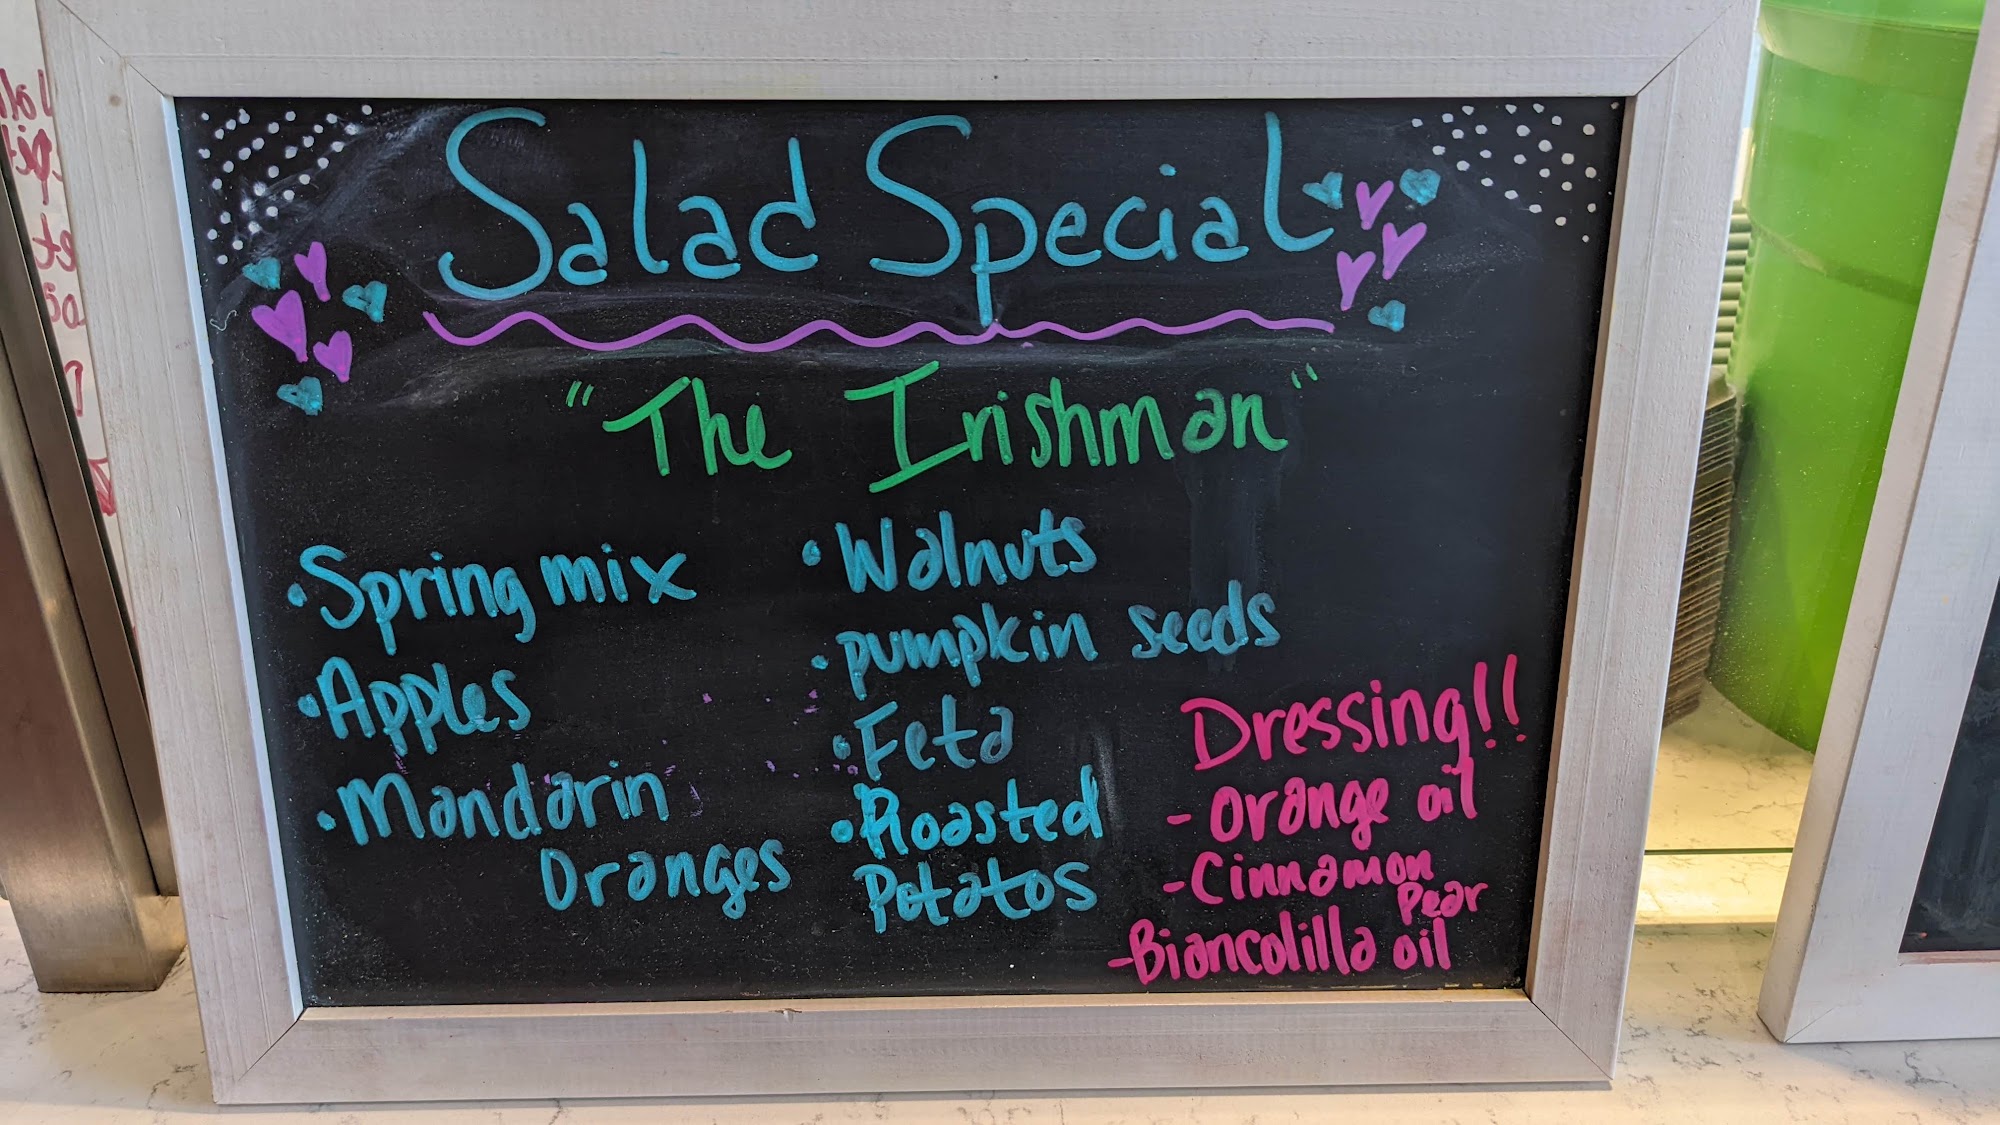 Salad Special
"The Irishman"
• Spring mix
• Apples
• Mandarin
Oranges
• Walnuts
• pumpkin seeds
• Feta
• Roasted
Potatos
Dressing!!
- Orange oil
- Cinnamon
Pear
- Biancolilla oil